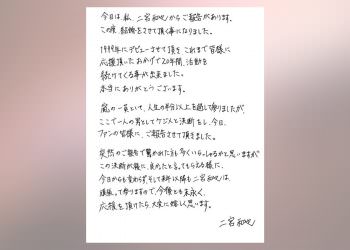 今日は、私、二宮和也からご報告があります。
この度、結婚をさせて頂く事になりました。
1999年にデビューさせて頂き、これまで皆様に
応援頂いたおかげで20年間、活動を
続けてくる事が出来ました。
本当にありがとうございます。
嵐の一員として、人生の半分以上を過して参りましたが、
ここで一人の男としてケジメと決断をし、今日、
ファンの皆様に、ご報告させて頂きました。
突然のご報告で驚かれた方も多くいらっしゃるかと思いますが
この決断が後に、良かったと言ってもらえる様に、
今日からも変わらず、そして来年以降も二宮和也は、
頑張って参りますので、今後とも末永く、
応援を頂けたら大変に嬉しく思います。
二宮和也